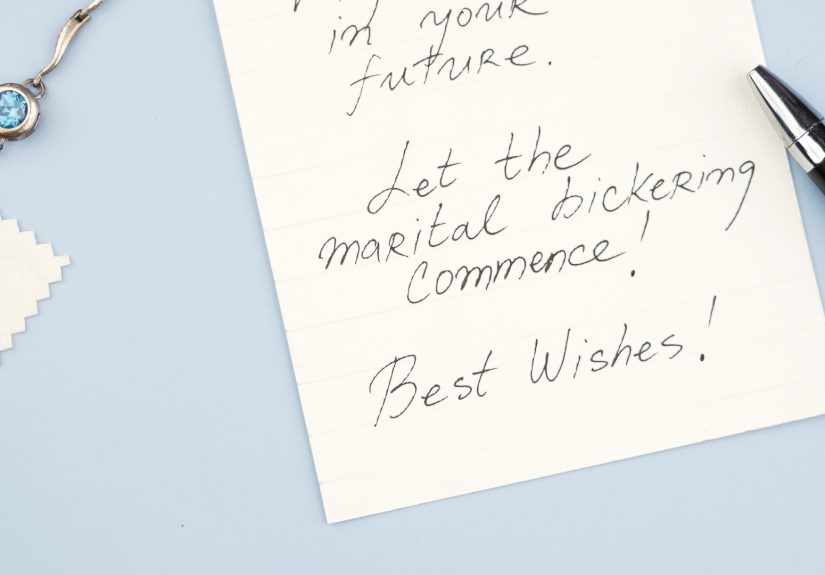 in your
future.
Let the
marital bickering
Commence!
Best Wishes!